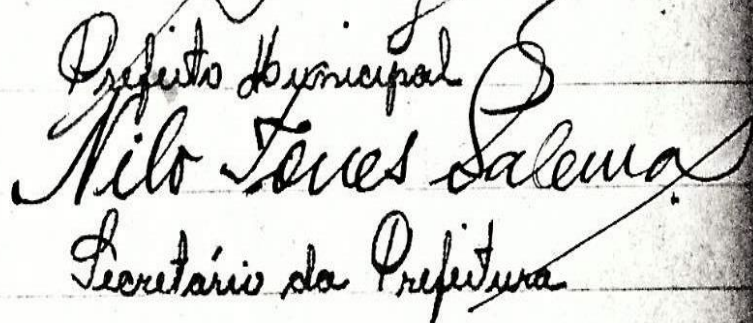 Prefeito Municipal
Nilo Tôrres Salema
Secretário da Prefeitura